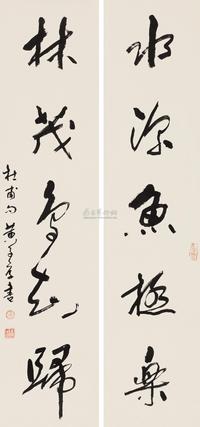 水深魚極樂
林茂鳥知歸
杜甫句